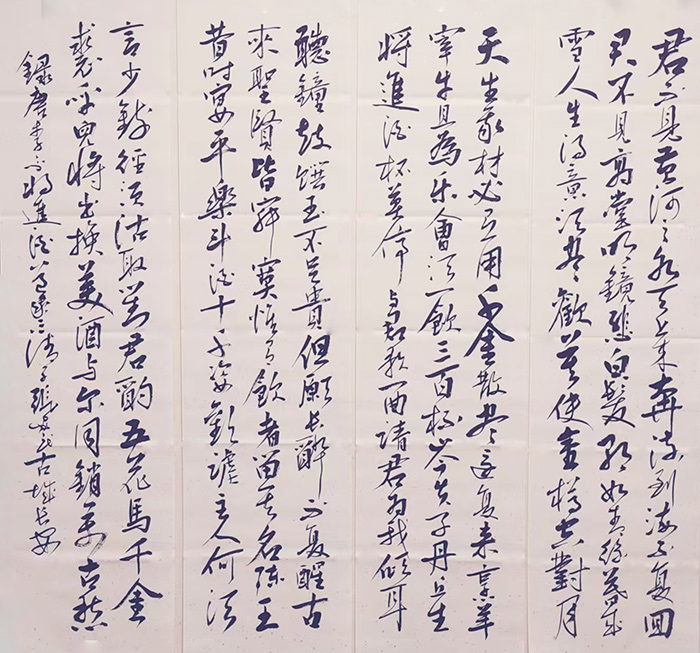 君不見黄河之水天上来奔流到海不复回
君不見高堂明鏡悲白髮朝如青絲暮成
雪人生得意须尽歡莫使金樽空對月
天生我材必有用千金散尽還复来烹羊
宰牛且為乐會须一飲三百杯岑夫子丹丘生
将進酒杯莫停与君歌一曲請君为我倾耳
聽鐘鼓饌玉不足貴但願长醉不复醒古
来聖賢皆寂寞惟有飲者留其名陈王
昔时宴平樂斗酒十千恣歡謔主人何须
言少錢径须沽取对君酌五花馬千金
裘呼兒将出換美酒与尔同銷萬古愁
録唐李白将進酒 古城长安